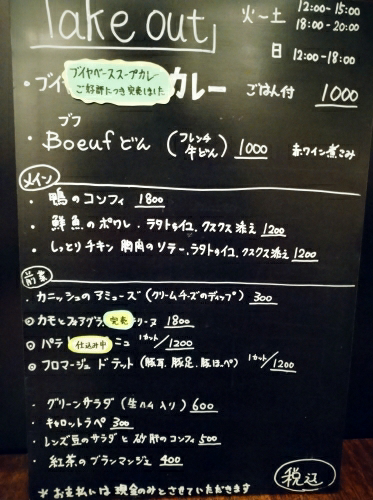 Take out
火〜土 12:00~15:00
18:00~20:00
日 12:00~18:00
ブイヤベーススープカレー
ご好評につき完売しました
・ブイヤ カレー ごはん付 1000
ブフ
・Boeufどん (フレンチ牛どん) 1000 赤ワイン煮こみ
メイン
・鴨のコンフィ 1800
・鮮魚のポワレ、ラタトゥイユ、クスクス添え 1200
・しっとりチキン 胸肉のソテー、ラタトゥイユ、クスクス添え 1200
前菜
・カニッシュのアミューズ (クリームチーズのディップ) 300
◎カモとフォアグラ 完売 テリーヌ 1800
◎パテ 仕込み中 ニュ 1カット/1200
◎フロマージュ ド テット (豚耳、豚足、豚ほっぺ) 1カット/1200
・グリーンサラダ (生ハム入り) 600
・キャロットラペ 300
・レンズ豆のサラダと砂肝のコンフィ 500
・紅茶のブランマンジェ 400
税込
＊お支払いは現金のみとさせていただきます